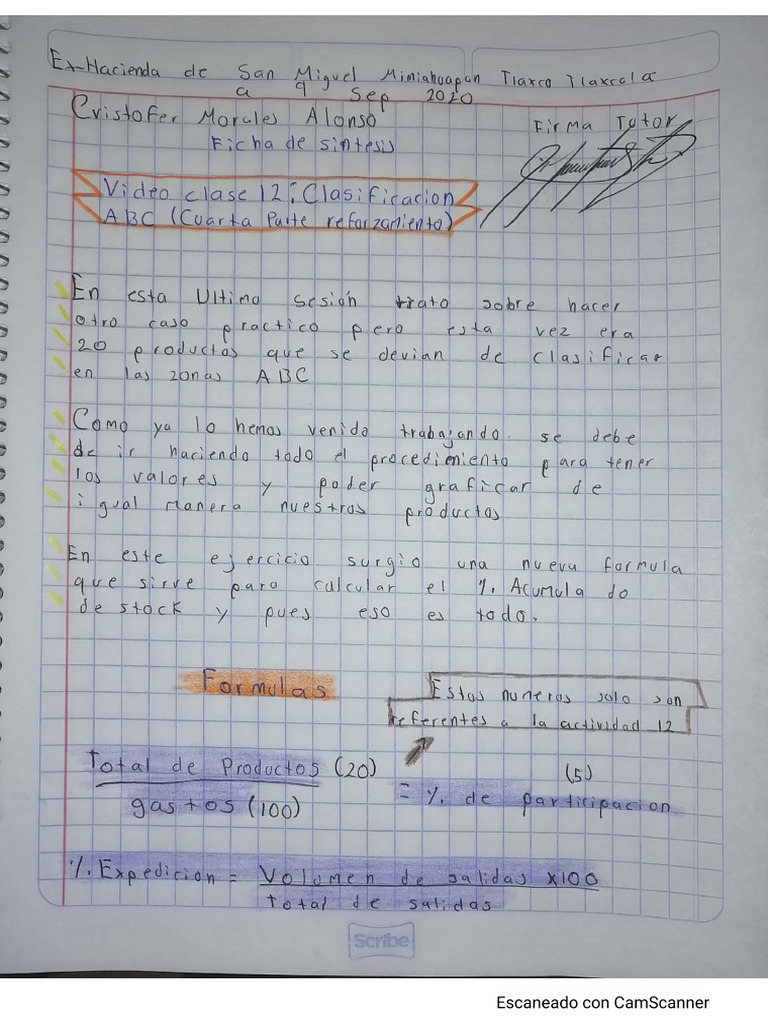 Ex-Hacienda de San Miguel Mimiahuapan Tlaxco Tlaxcala
a 9 Sep 2020
Cristofer Morales Alonso
Firma Tutor
Ficha de sintesis
Video clase 12: Clasificacion
ABC (Cuarta Parte reforzamiento)
En esta Ultima sesión trato sobre hacer
otro caso practico pero esta vez era
20 productos que se devian de clasificar
en las zonas ABC
Como ya lo hemos venido trabajando. se debe
de ir haciendo todo el procedimiento para tener
los valores y poder graficar de
igual manera nuestros productos
En este ejercicio surgio una nueva formula
que sirve para calcular el %. Acumula do
de stock y pues eso es todo.
Formulas
Estos numeros solo son
referentes a la actividad 12
Total de Productos (20)
gastos (100)
(5)
= %. de participacion
%. Expedicion = Volumen de salidas x100
total de salidas
Scribe
Escaneado con CamScanner